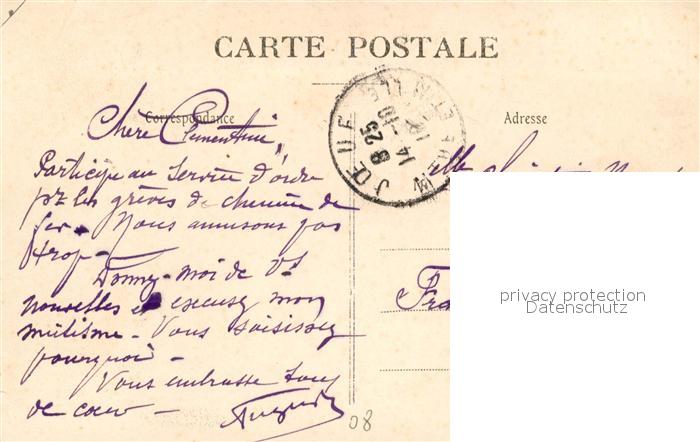 CARTE POSTALE
Correspondance
Adresse
Chère Clémentine,
Participe au service d'ordre
pr les grèves de chemin de
fer - Nous amusons pas
trop -
Donnez-moi de Vs
nouvelles et excusez mon
mutisme - Vous saisissez
pourquoi -
Vous embrasse tous
de cœur -
JŒUF
8 25
14 -10
Mlle
privacy protection
Datenschutz
08